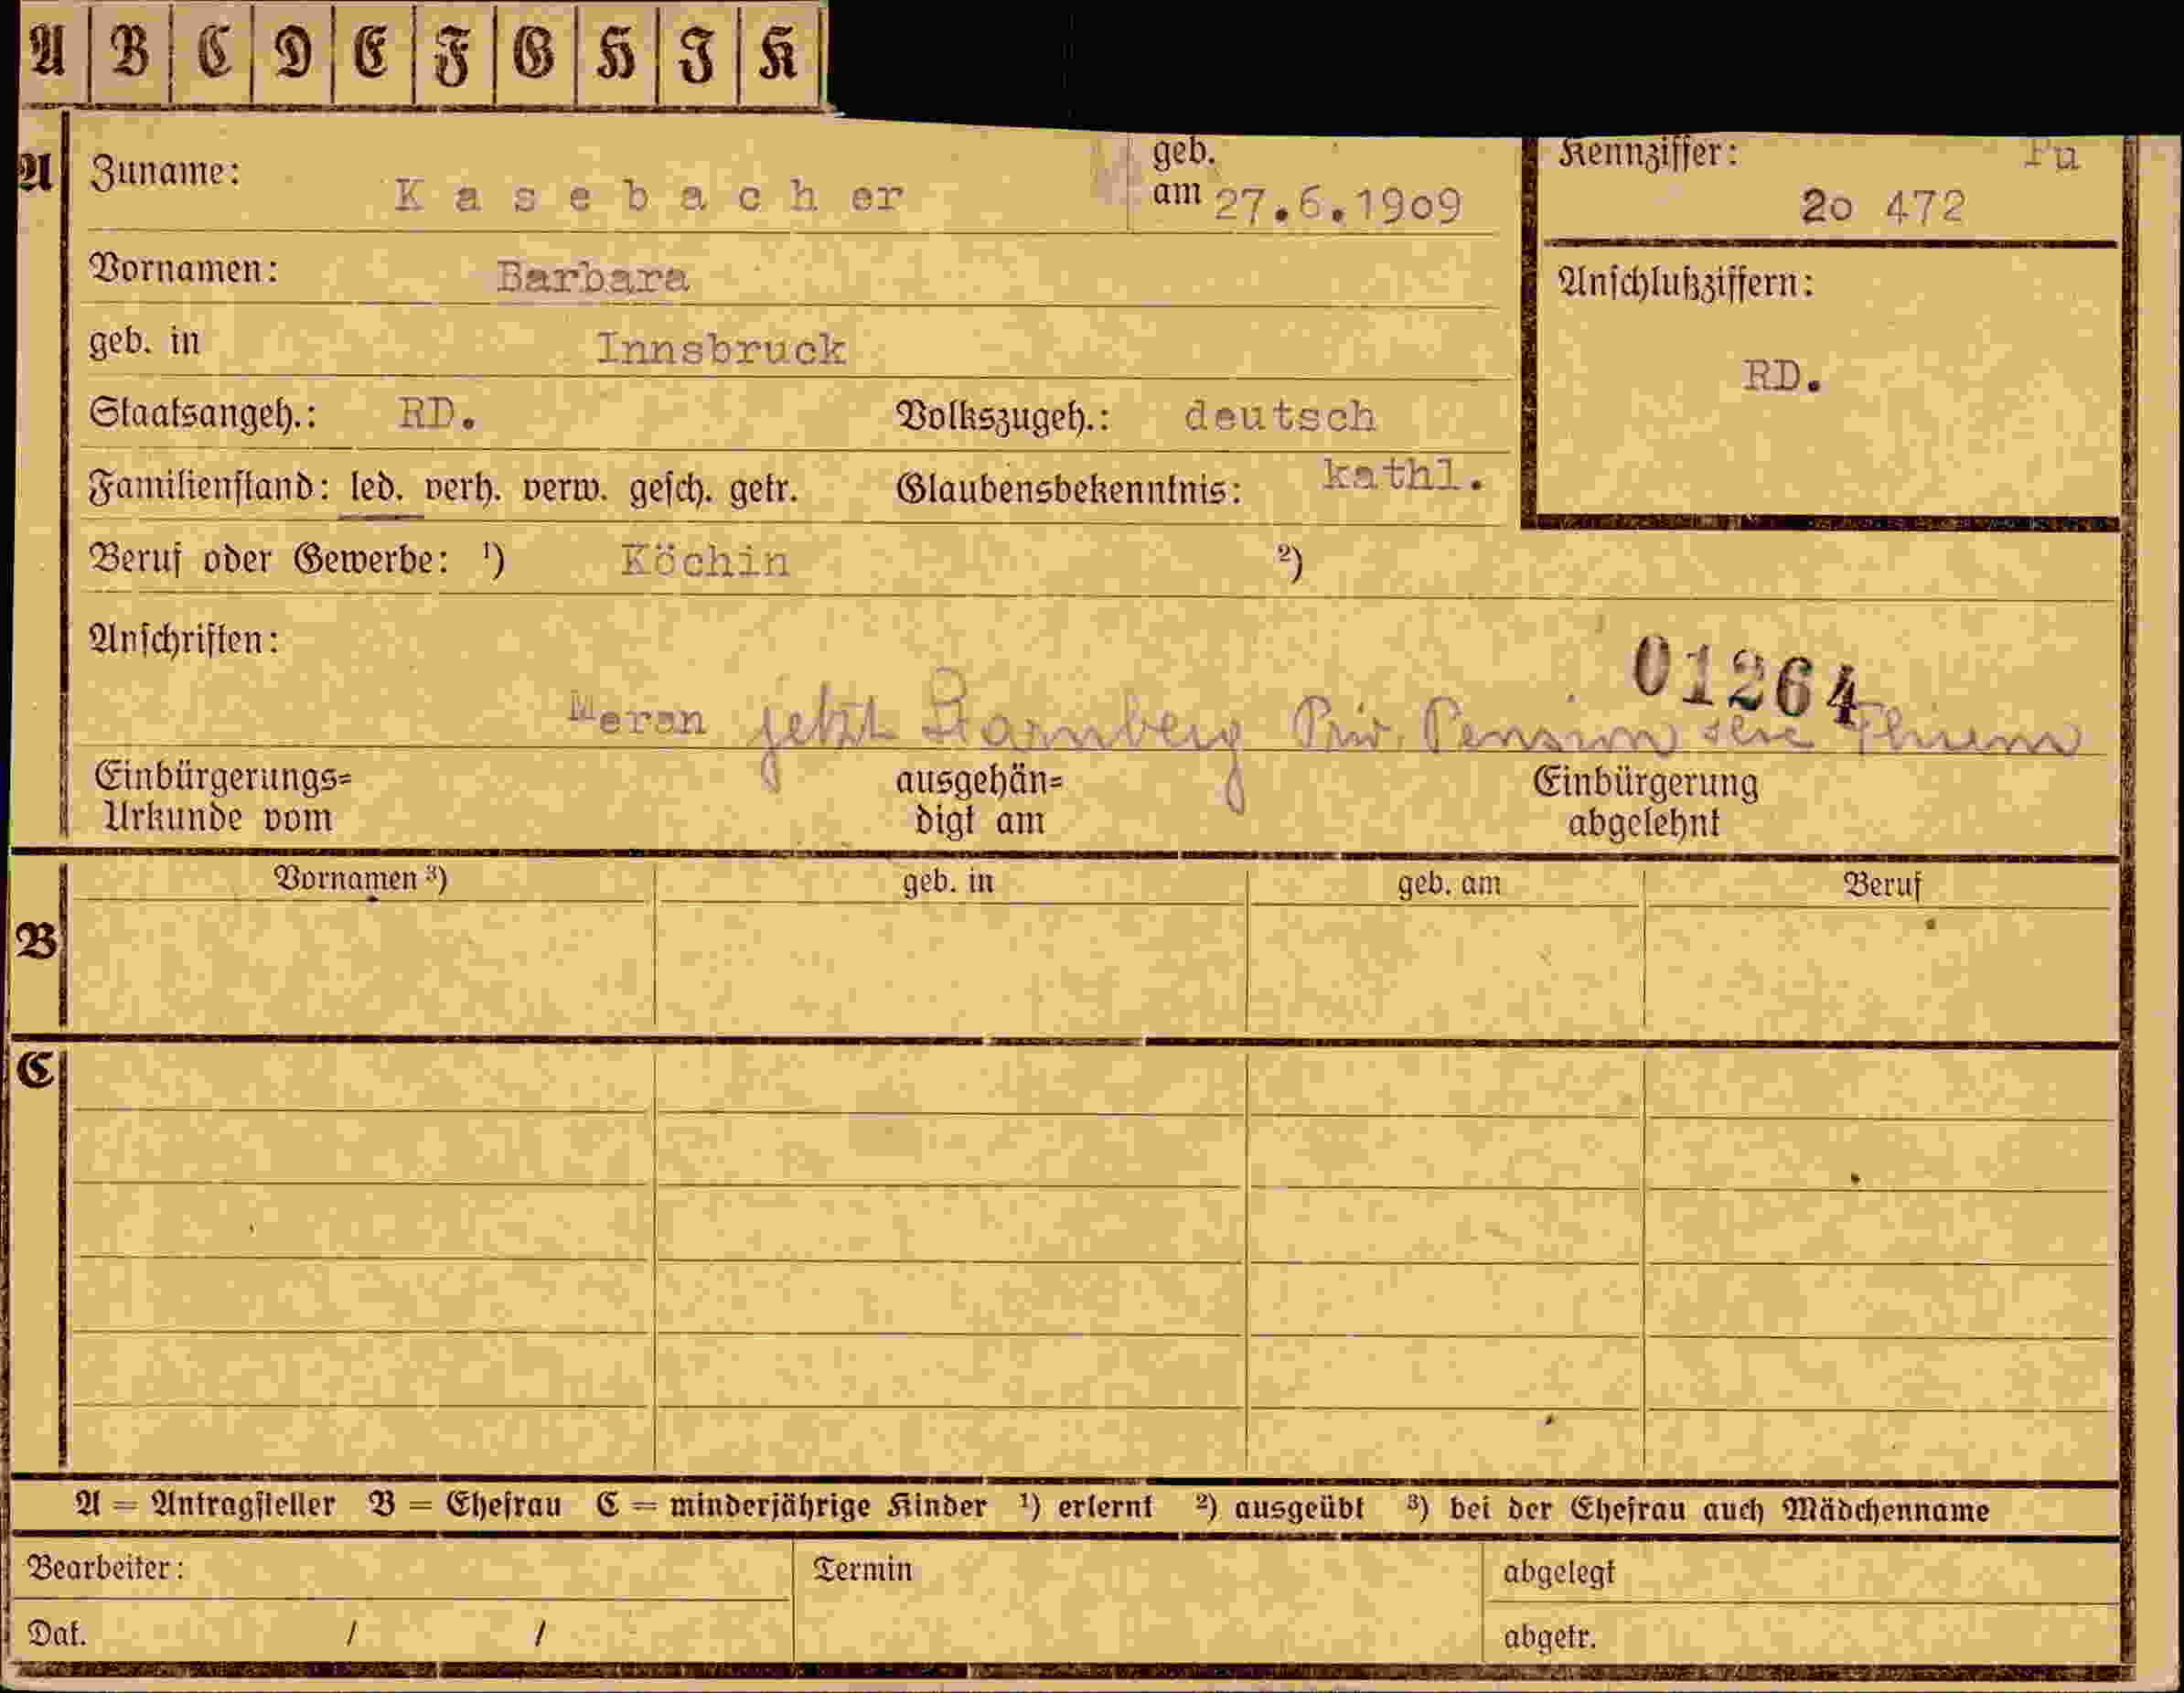 A B C D E F G H I K
A Zuname: Kasebacher geb. am 27.6.1909 Kennziffer: 20 472
Vornamen: Barbara Anschlußziffern:
geb. in Innsbruck RD.
Staatsangeh.: RD. Volkszugeh.: deutsch
Familienstand: led. verh. verw. gesch. getr. Glaubensbekenntnis: kathl.
Beruf oder Gewerbe: ¹) Köchin ²)
Anschriften: 01264
Meran jetzt Starnberg Priv. Pension
Einbürgerungs= ausgehän= Einbürgerung
Urkunde vom digt am abgelehnt
Vornamen ³) geb. in geb. am Beruf
B
C
A = Antragsteller B = Ehefrau C = minderjährige Kinder ¹) erlernt ²) ausgeübt ³) bei der Ehefrau auch Mädchenname
Bearbeiter: Termin abgelegt
Dat. / / abgetr.